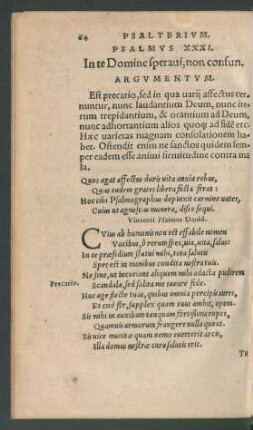 64 PSALTERIVM.
PSALMVS XXXI.
In te Domine speraui, non confun.
ARGVMENTVM.
Est precatio, sed in qua uarij affectus cer-
nuntur, nunc laudantium Deum, nunc ite-
rum trepidantium, & orantium ad Deum,
nunc adhortantium alios quoq; ad fidē etc.
Hæc uarietas magnam consolationem ha-
bet. Ostendit enim ne sanctos quidem sem-
per eadem esse animi firmitudine contra ma
la.
Quos agat affectus duris uita anxia rebus,
Quas eadem grates libera facta ferat:
Hoc tibi Psalmographus depinxit carmine uates,
Cuius ut agnoscas munera, disce sequi.
Vincenti Psalmus Dauid.
CVm ab humanis non est effabile nomen
Vocibus, ô rerum spes, uia, uita, salus:
In te præsidium statui mihi, tota salutis
Spes est in manibus condita nostra tuis.
Ne sine, ut incutiant aliquem mihi addacta pudorem
Precatio. Scandala, sed solita me tueare fide.
Huc age flecte tuas, quibus omnia percipis aures,
Et citò fer, supplex quam tuus ambit, opem.
Sis mihi in auxilium tanquam fortissima rupes,
Quam uis armorum frangere nulla queat.
Sis uice munitæ quam nemo euerterit arcis,
Illa domus nostræ cura salutis erit.
Tu